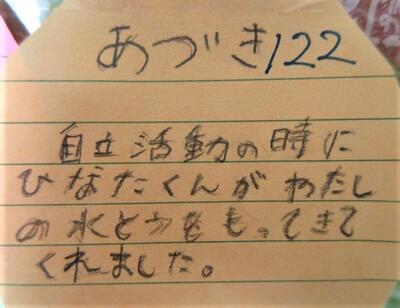 あづき122
自立活動の時に
ひなたくんがわたし
の水とうをもってきて
くれました。